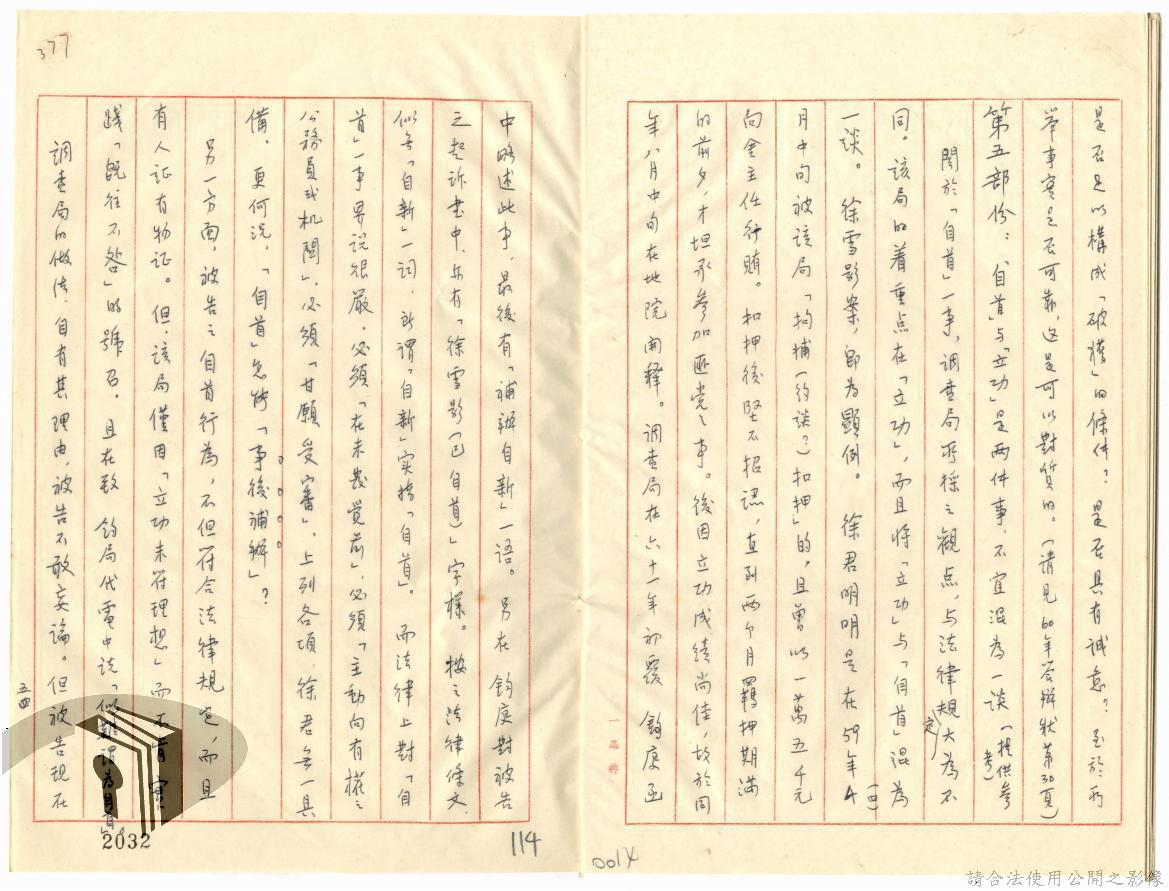 是否足以構成「破獲」的條件？是否具有誠意？至於所
举事实是否可靠，这是可以對質的。（請見60年答辯狀第30頁）
第五部份：「自首」与「立功」是两件事，不宜混為一談（提供參考）
關於「自首」一事，調查局所採之觀点，与法律規定大為不
同。該局的着重点在「立功」，而且將「立功」与「自首」混為
一談。徐雪影案，即為顯例。徐君明明是在59年4
月中旬被該局「拘捕（約談？）扣押」的，且曾以一萬五千元
向金主任行賄。扣押後坚不招認，直到两个月羈押期满
的前夕，才坦承參加匪党之事。後因立功成績尚佳，故於同
年八月中旬在地院開釋。調查局在六十一年初覆 鈞庭函
中略述此事，最後有「補辦自新」一語。另在 鈞庭對被告
之起訴書中，亦有「徐雪影（已自首）」字樣。按之法律條文，
似無「自新」一詞，所謂「自新」实指「自首」。而法律上對「自
首」一事界説很嚴，必須「在未發覚前」，必須「主動向有權之
公務員或机關」，必須「甘願受審」。上列各項，徐君無一具
備，更何况，「自首」怎能「事後補辦」？
另一方面，被告之自首行為，不但符合法律規定，而且
有人証有物证。但，該局僅因「立功未符理想」而不肯實
踐「既往不咎」的號召。且在致 鈞局代電中説「似難謂為自首」。
調查局的做法，自有其理由，被告不敢妄論。但被告現在
377
五四
2032
114
0014
一品牌
請合法使用公開之影像